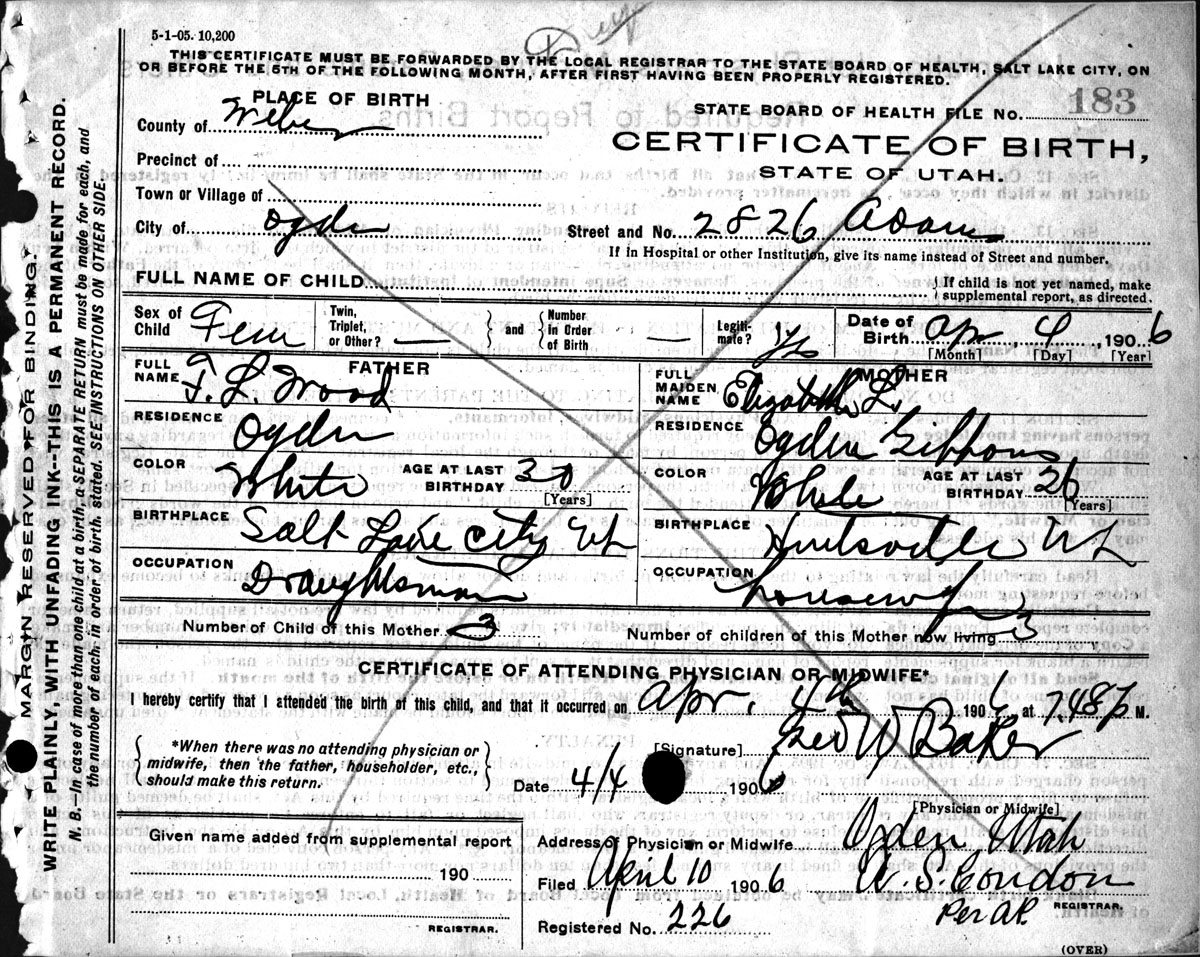 5-1-05. 10,200
THIS CERTIFICATE MUST BE FORWARDED BY THE LOCAL REGISTRAR TO THE STATE BOARD OF HEALTH, SALT LAKE CITY, ON
OR BEFORE THE 5TH OF THE FOLLOWING MONTH, AFTER FIRST HAVING BEEN PROPERLY REGISTERED.
PLACE OF BIRTH
STATE BOARD OF HEALTH FILE NO. 183
County of Weber
CERTIFICATE OF BIRTH,
Precinct of
STATE OF UTAH.
Town or Village of
City of Ogden Street and No. 2826 Adams
If in Hospital or other Institution, give its name instead of Street and number.
FULL NAME OF CHILD If child is not yet named, make
supplemental report, as directed.
Sex of Child Fem Twin, Triplet, or Other? — and Number In Order of Birth — Legiti-mate? Date of Birth Apr 4, 1906
[Month] [Day] [Year]
FATHER MOTHER
FULL NAME F. L. Wood FULL MAIDEN NAME Elizabeth L.
RESIDENCE Ogden RESIDENCE Ogden Gibbons
COLOR White AGE AT LAST BIRTHDAY 30 [Years] COLOR White AGE AT LAST BIRTHDAY 26 [Years]
BIRTHPLACE Salt Lake City Ut BIRTHPLACE Huntsville Ut
OCCUPATION Draughtsman OCCUPATION housewife
Number of Child of this Mother 3 Number of children of this Mother now living 3
CERTIFICATE OF ATTENDING PHYSICIAN OR MIDWIFE*
I hereby certify that I attended the birth of this child, and that it occurred on Apr. 4th 1906, at 7.48 P M.
*When there was no attending physician or
midwife, then the father, householder, etc.,
should make this return.
[Signature] Geo W Baker
Date 4/4 1906
[Physician or Midwife]
Given name added from supplemental report
190
REGISTRAR.
Address of Physician or Midwife Ogden Utah
Filed April 10 1906 W. S. Condon
REGISTRAR.
Per A.P.
Registered No. 226
(OVER)
MARGIN RESERVED FOR BINDING.
WRITE PLAINLY, WITH UNFADING INK--THIS IS A PERMANENT RECORD.
N. B.--In case of more than one child at a birth, a SEPARATE RETURN must be made for each, and
the number of each, in order of birth, stated. SEE INSTRUCTIONS ON OTHER SIDE.